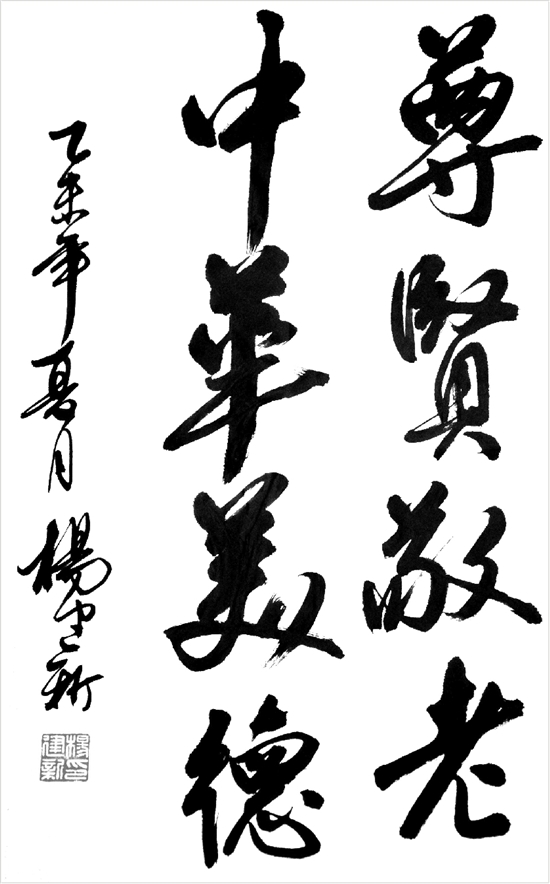 尊賢敬老
中華美德
乙未年夏月
楊建新
楊建新印